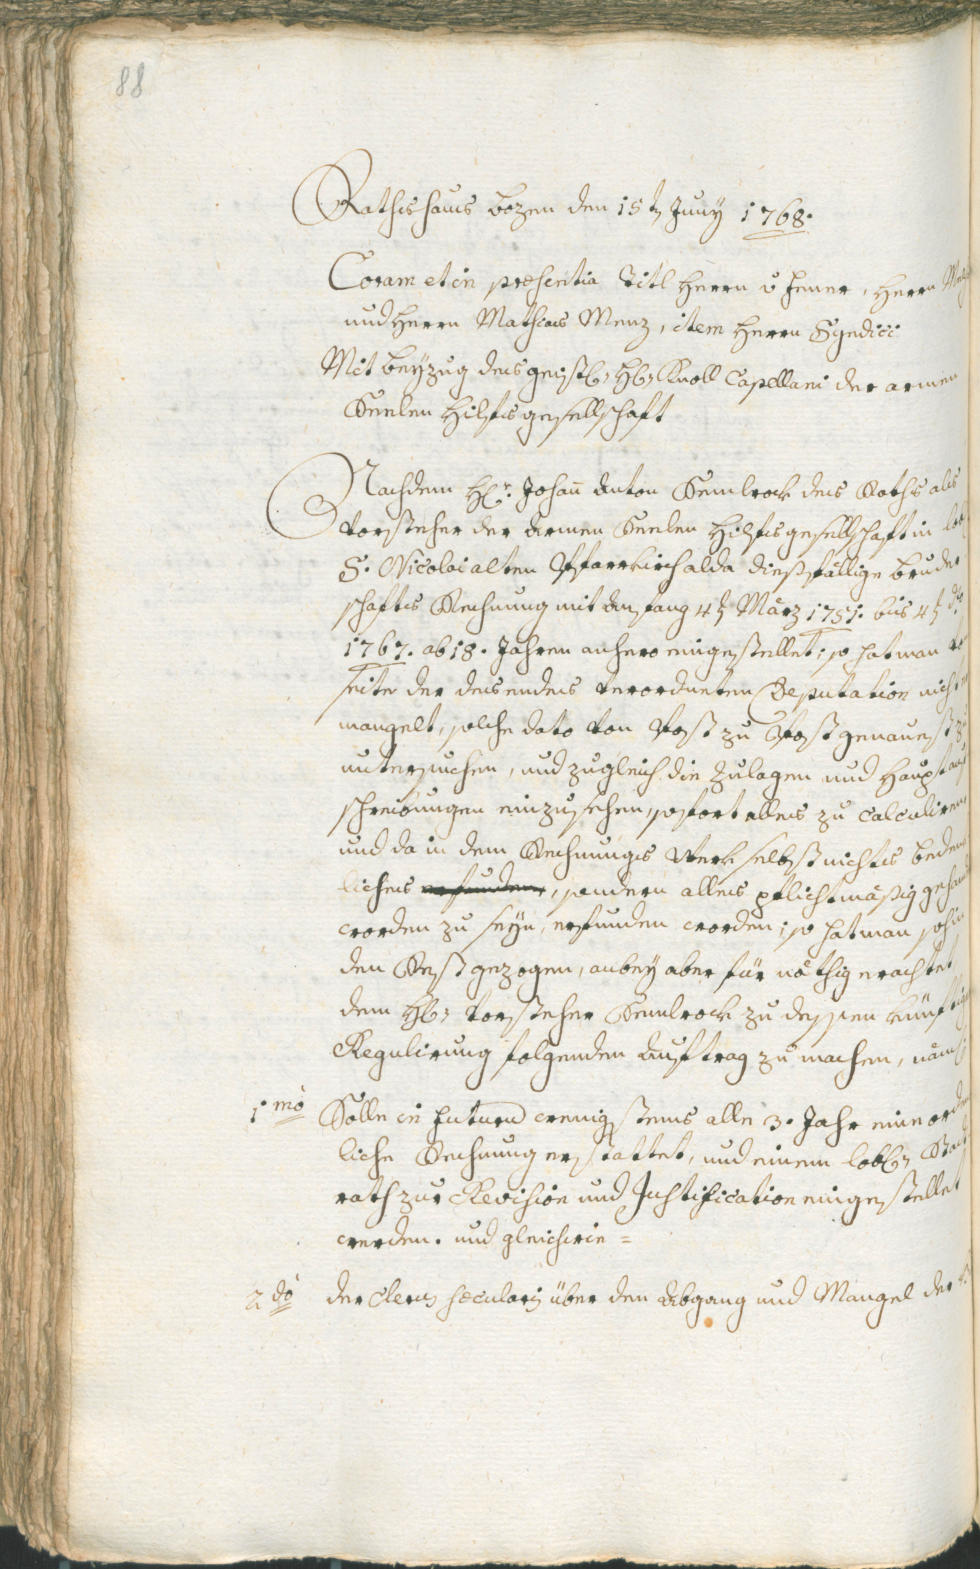 88
Rathshaus Bozen den 15t Juny 1768.
Coram et in præsentia Titl Herrn v Jenner, Herrn
und Herrn Mathias Menz, item Herrn Syndici
Mit beyzug des geistl: H: Knoll Capellani der armen
Seelen Hilfsgesellschaft
Nachdem Hr: Johan Anton Semlrock des Raths als
Vorsteher der Armen Seelen Hilfsgesellschaft in
S. Nicolai alten Pfarrkirch alda diesfällige Bruder
schafts Rechnung mit Anfang 4t März 1751. bis 4t d
1767. ab 18. Jahren anhero eingestellet; so hat man
seite der des endes verordneten Deputation nicht
mangelt, solche dato von Post zu Post genauest zu
untersuchen, und zugleich die Zulagen und Haupt
schreibungen einzusehen, sofort alles zu calculiren
und da in dem Rechnungs Werk selbst nichts beden
liches erfunden, sondern alles pflichtmäßig gehan
worden zu seyn, erfunden worden; so hat man sohin
den Rest gezogen, anbey aber für nöthig erachtet
dem H: Vorsteher Semlrock zu dessen künftig
Regulierung folgenden Auftrag zu machen, näml
1mo Solle in futuro wenigstens alle 3. Jahr eine orden
liche Rechnung erstattet, und einem löbl: Stadt
rath zur Revision und Justification eingestellet
werden. und gleichwie =
2do der Clerus sæcularis über den Abgang und Mangel der